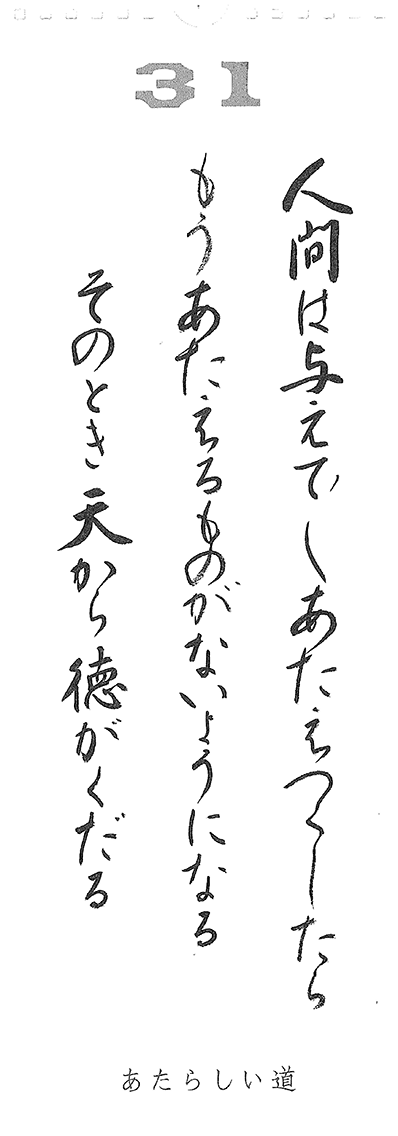 31
人間は与えて〳〵あたえつくしたら
もうあたえるものがないようになる
そのとき天から徳がくだる
あたらしい道